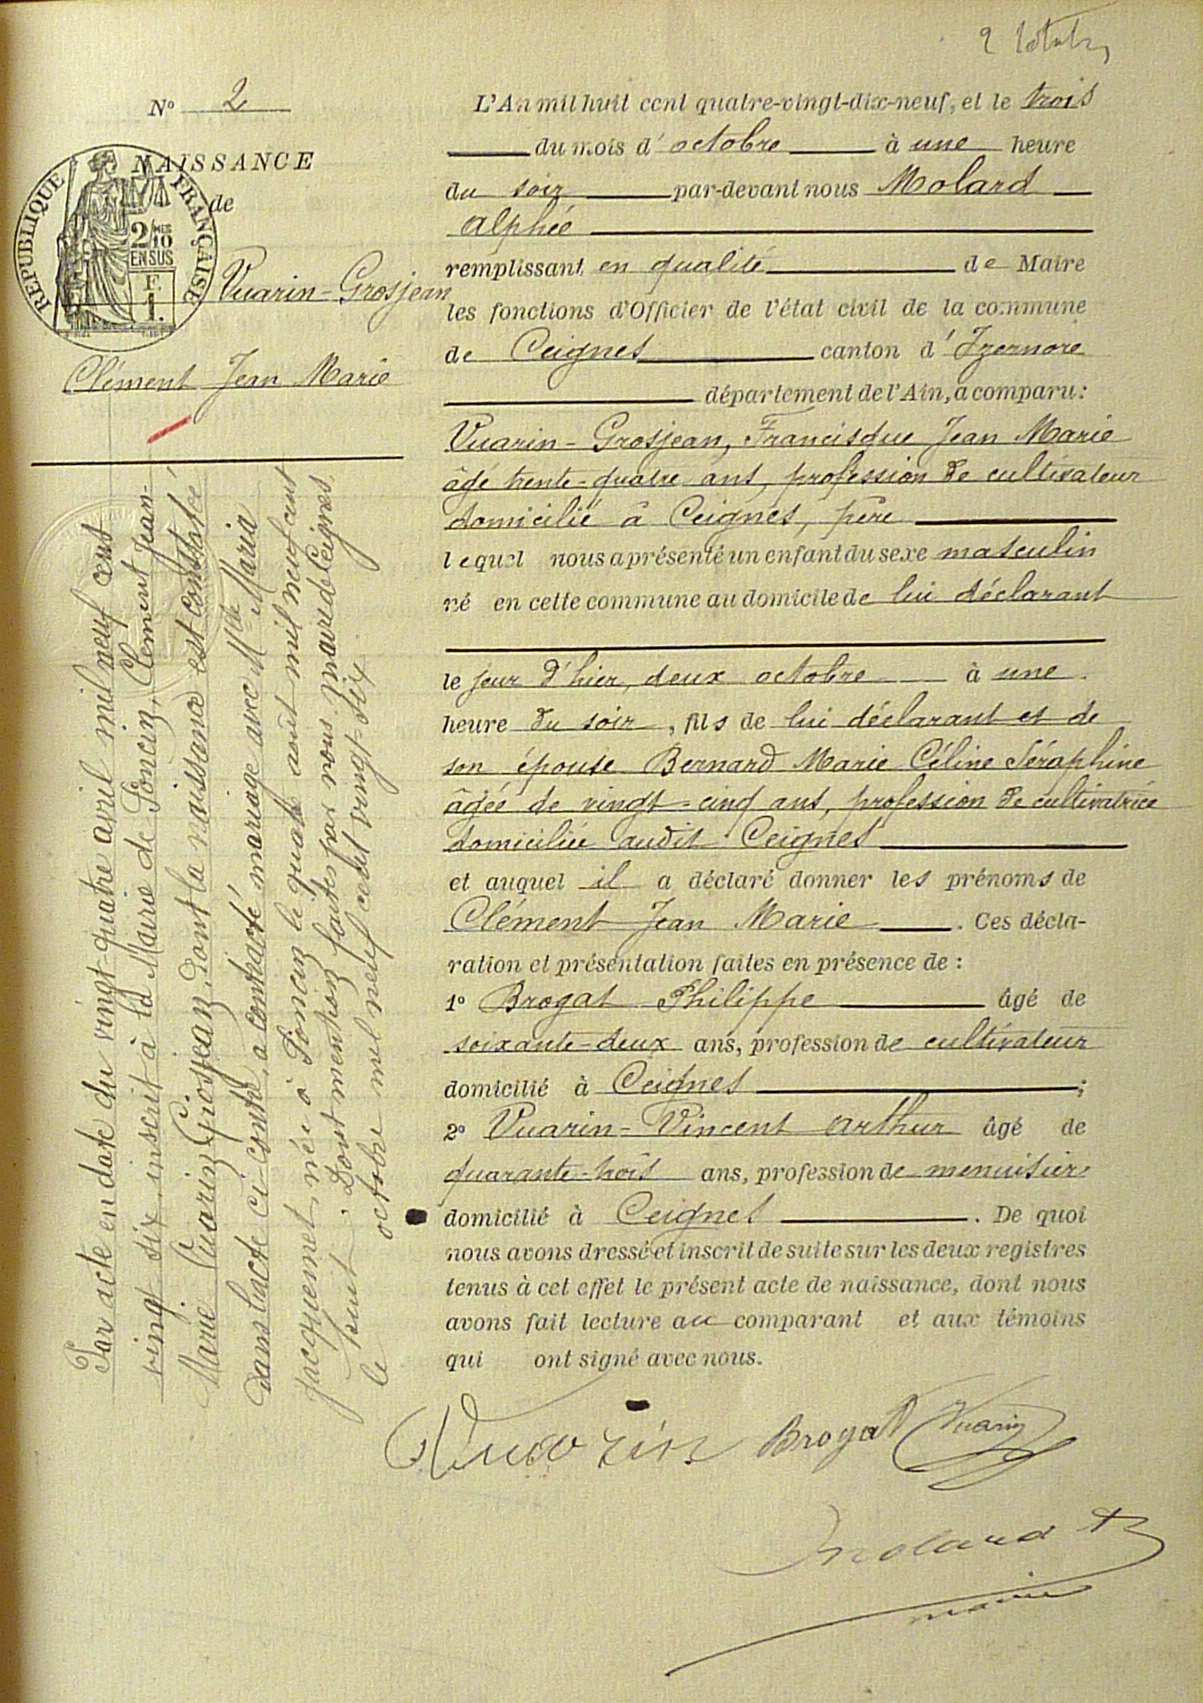 2 octobre
N° 2
NAISSANCE
de
RÉPUBLIQUE FRANÇAISE
2/10
EN SUS
F.
1.
Vuarin-Grosjean
Clément Jean Marie
L'An mil huit cent quatre-vingt-dix-neuf, et le trois
du mois d'octobre à une heure
du soir par-devant nous Molard
Alphée
remplissant en qualité de Maire
les fonctions d'Officier de l'état civil de la commune
de Ceignes canton d'Izernore
département de l'Ain, a comparu:
Vuarin-Grosjean, Francisque Jean Marie
âgé trente-quatre ans, profession de cultivateur
domicilié à Ceignes, père
lequel nous a présenté un enfant du sexe masculin
né en cette commune au domicile de lui déclarant
le jour d'hier, deux octobre à une
heure du soir, fils de lui déclarant et de
son épouse Bernard Marie Céline Séraphine
âgée de vingt-cinq ans, profession de cultivatrice
domiciliée audit Ceignes
et auquel il a déclaré donner les prénoms de
Clément Jean Marie. Ces décla-
ration et présentation faites en présence de :
1° Brogat Philippe âgé de
soixante-deux ans, profession de cultivateur
domicilié à Ceignes ;
2° Vuarin-Vincent Arthur âgé de
quarante-trois ans, profession de menuisier
domicilié à Ceignes. De quoi
nous avons dressé et inscrit de suite sur les deux registres
tenus à cet effet le présent acte de naissance, dont nous
avons fait lecture au comparant et aux témoins
qui ont signé avec nous.
Vuarin Brogat Vuarin
Molard A
maire
Par acte en date du vingt-quatre avril mil neuf cent
vingt six inscrit à la Mairie de Poncin, Clément Jean-
Marie Vuarin Grosjean, dont la naissance est constatée
dans l'acte ci-contre, a contracté mariage avec Mlle Maria
Jacquemet, née à Poncin le quatre août mil neuf cent
huit. Dont mention faite par nous, maire de Ceignes
le octobre mil neuf cent vingt-six